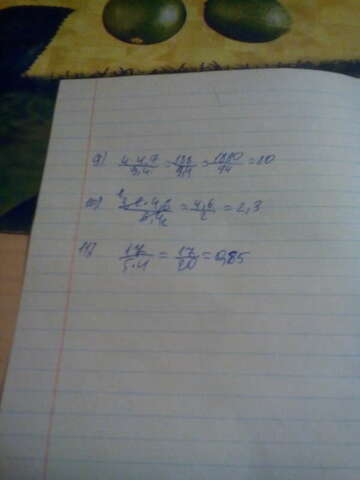 9) 4 4,7/9,4 = 188/9,4 = 1880/94 = 20
10) 4,6/2 = 2,3
11) 17/5·4 = 17/20 = 0,85